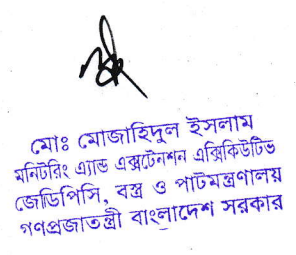 মোঃ মোজাহিদুল ইসলাম
মনিটরিং এ্যান্ড এক্সটেনশন এক্সিকিউটিভ
জেডিপিসি, বস্ত্র ও পাটমন্ত্রণালয়
গণপ্রজাতন্ত্রী বাংলাদেশ সরকার